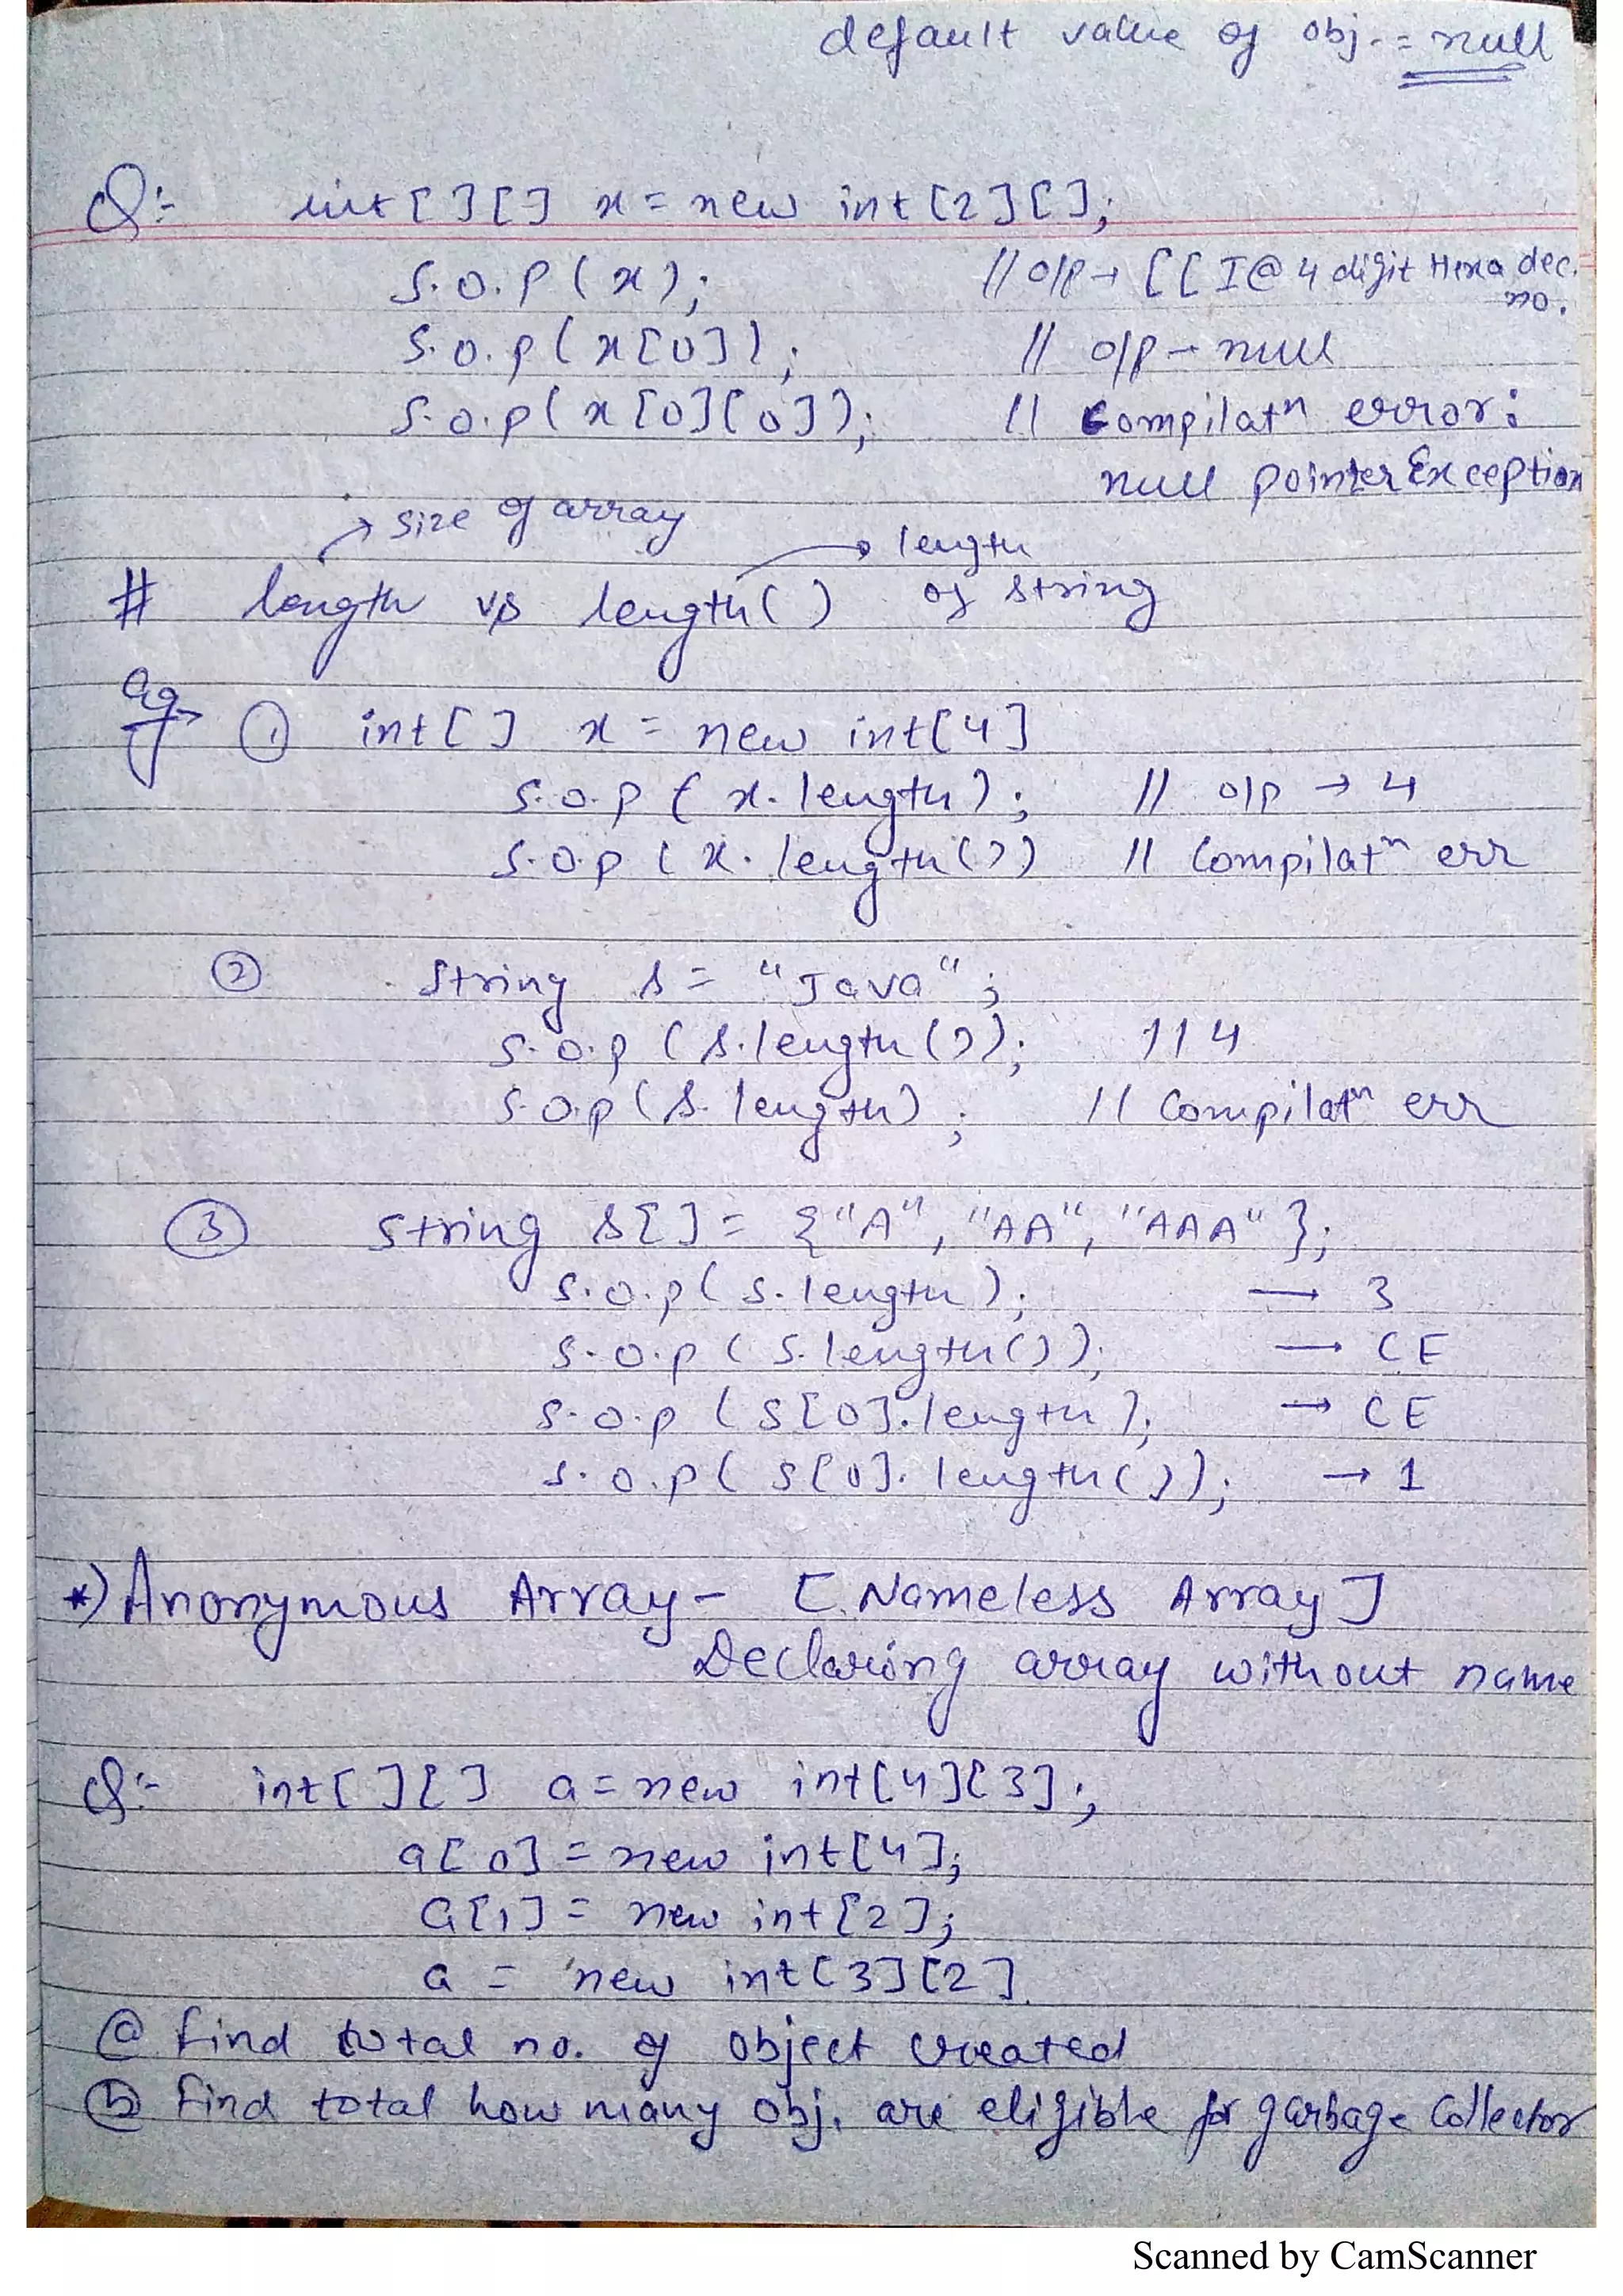 default value of obj. = null
Q:- int[][] x = new int[2][];
S.o.p(x); // o/p → [[I@ 4 digit Hexa dec. no.
S.o.p(x[0]); // o/p → null
S.o.p(x[0][0]); // Compilatn error: null pointer Exception
→ size of array → length of string
# length vs length()
eg → ① int[] x = new int[4]
S.o.p(x.length); // o/p → 4
S.o.p(x.length()) // Compilatn err
② String s = "Java";
S.o.p(s.length()); // 4
S.o.p(s.length); // Compilatn err
③ String s[] = {"A", "AA", "AAA"};
S.o.p(s.length); → 3
S.o.p(s.length()); → CE
S.o.p(s[0].length); → CE
S.o.p(s[0].length()); → 1
*) Anonymous Array - [Nameless Array]
Declaring array without name
Q:- int[][] a = new int[4][3];
a[0] = new int[4];
a[1] = new int[2];
a = new int[3][2]
ⓐ find total no. of object created
ⓑ find total how many obj. are eligible for garbage Collector
Scanned by CamScanner